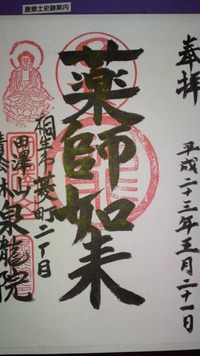 菱郷土史跡案内
奉拝
平成二十三年五月二十一日
薬師如来
桐生市菱町二丁目
田澤山
泉龍院